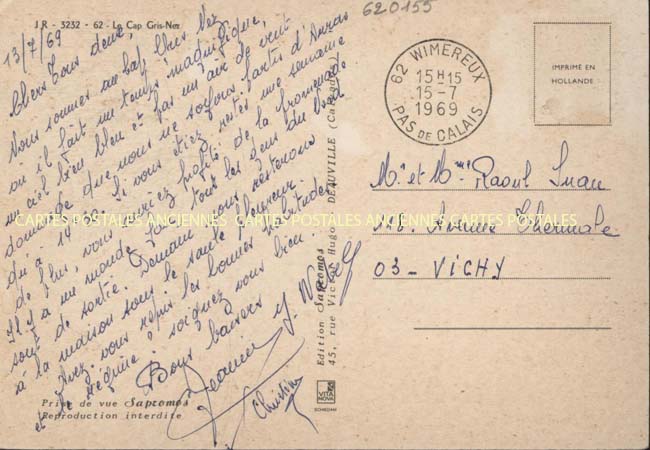 620155
J R - 3232 - 62 - Le Cap Gris-Nez
13/7/69
Chers tous deux,
Nous sommes au Cap Gris Nez
où il fait un temps magnifique,
un ciel bien bleu et pas un air de vent
dommage que nous ne soyons partis d'Arras
qu'à 14h30. Si vous étiez restés une semaine
de plus, vous auriez profité de la promenade
Il y a un monde fou, tous les gens du Nord
sont de sortie. Demain nous resterons
à la maison sous le saule pleureur.
Avez vous repris les bonnes habitudes
et le régime ? soignez vous bien.
Bons baisers
Jeannine
Christian
Prise de vue Sapromos
Reproduction interdite
Edition Sapromos
45, rue Victor Hugo - DEAUVILLE (Calvados)
VITA NOVA
SCHIEDAM
62 WIMEREUX
15 H 15
15-7
1969
PAS DE CALAIS
IMPRIMÉ EN
HOLLANDE
Mr et Mme Raoul
116. Avenue Thermale
03 - VICHY
CARTES POSTALES ANCIENNES CARTES POSTALES ANCIENNES CARTES POSTALES ANCIENNES